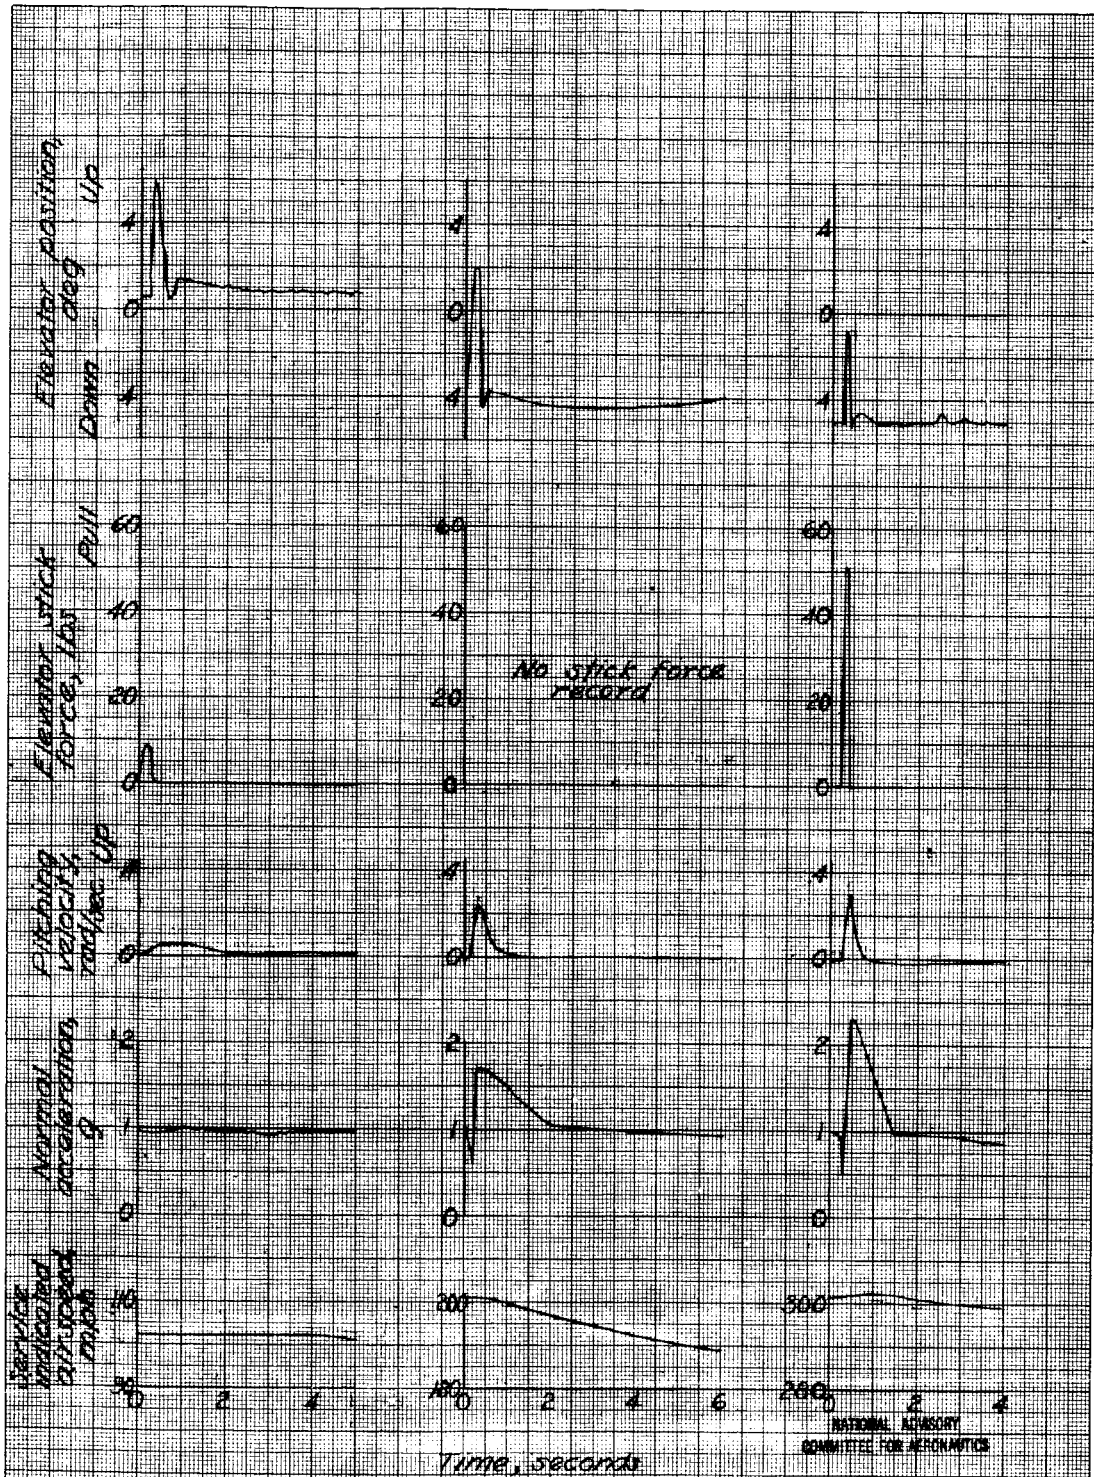 Elevator position,
deg
Down Up
4
0
4
4
0
4
4
0
4
Elevator stick
force, lbs
Pull
60
40
20
0
60
40
20
0
No stick force
record
60
40
20
0
Pitching
velocity,
rad/sec Up
0
.4
0
.4
0
Normal
acceleration,
g
2
1
0
2
1
0
2
1
0
Service
indicated
airspeed,
mph
110
90
200
180
300
280
0 2 4
0 2 4 6
0 2 4
Time, seconds
NATIONAL ADVISORY
COMMITTEE FOR AERONAUTICS